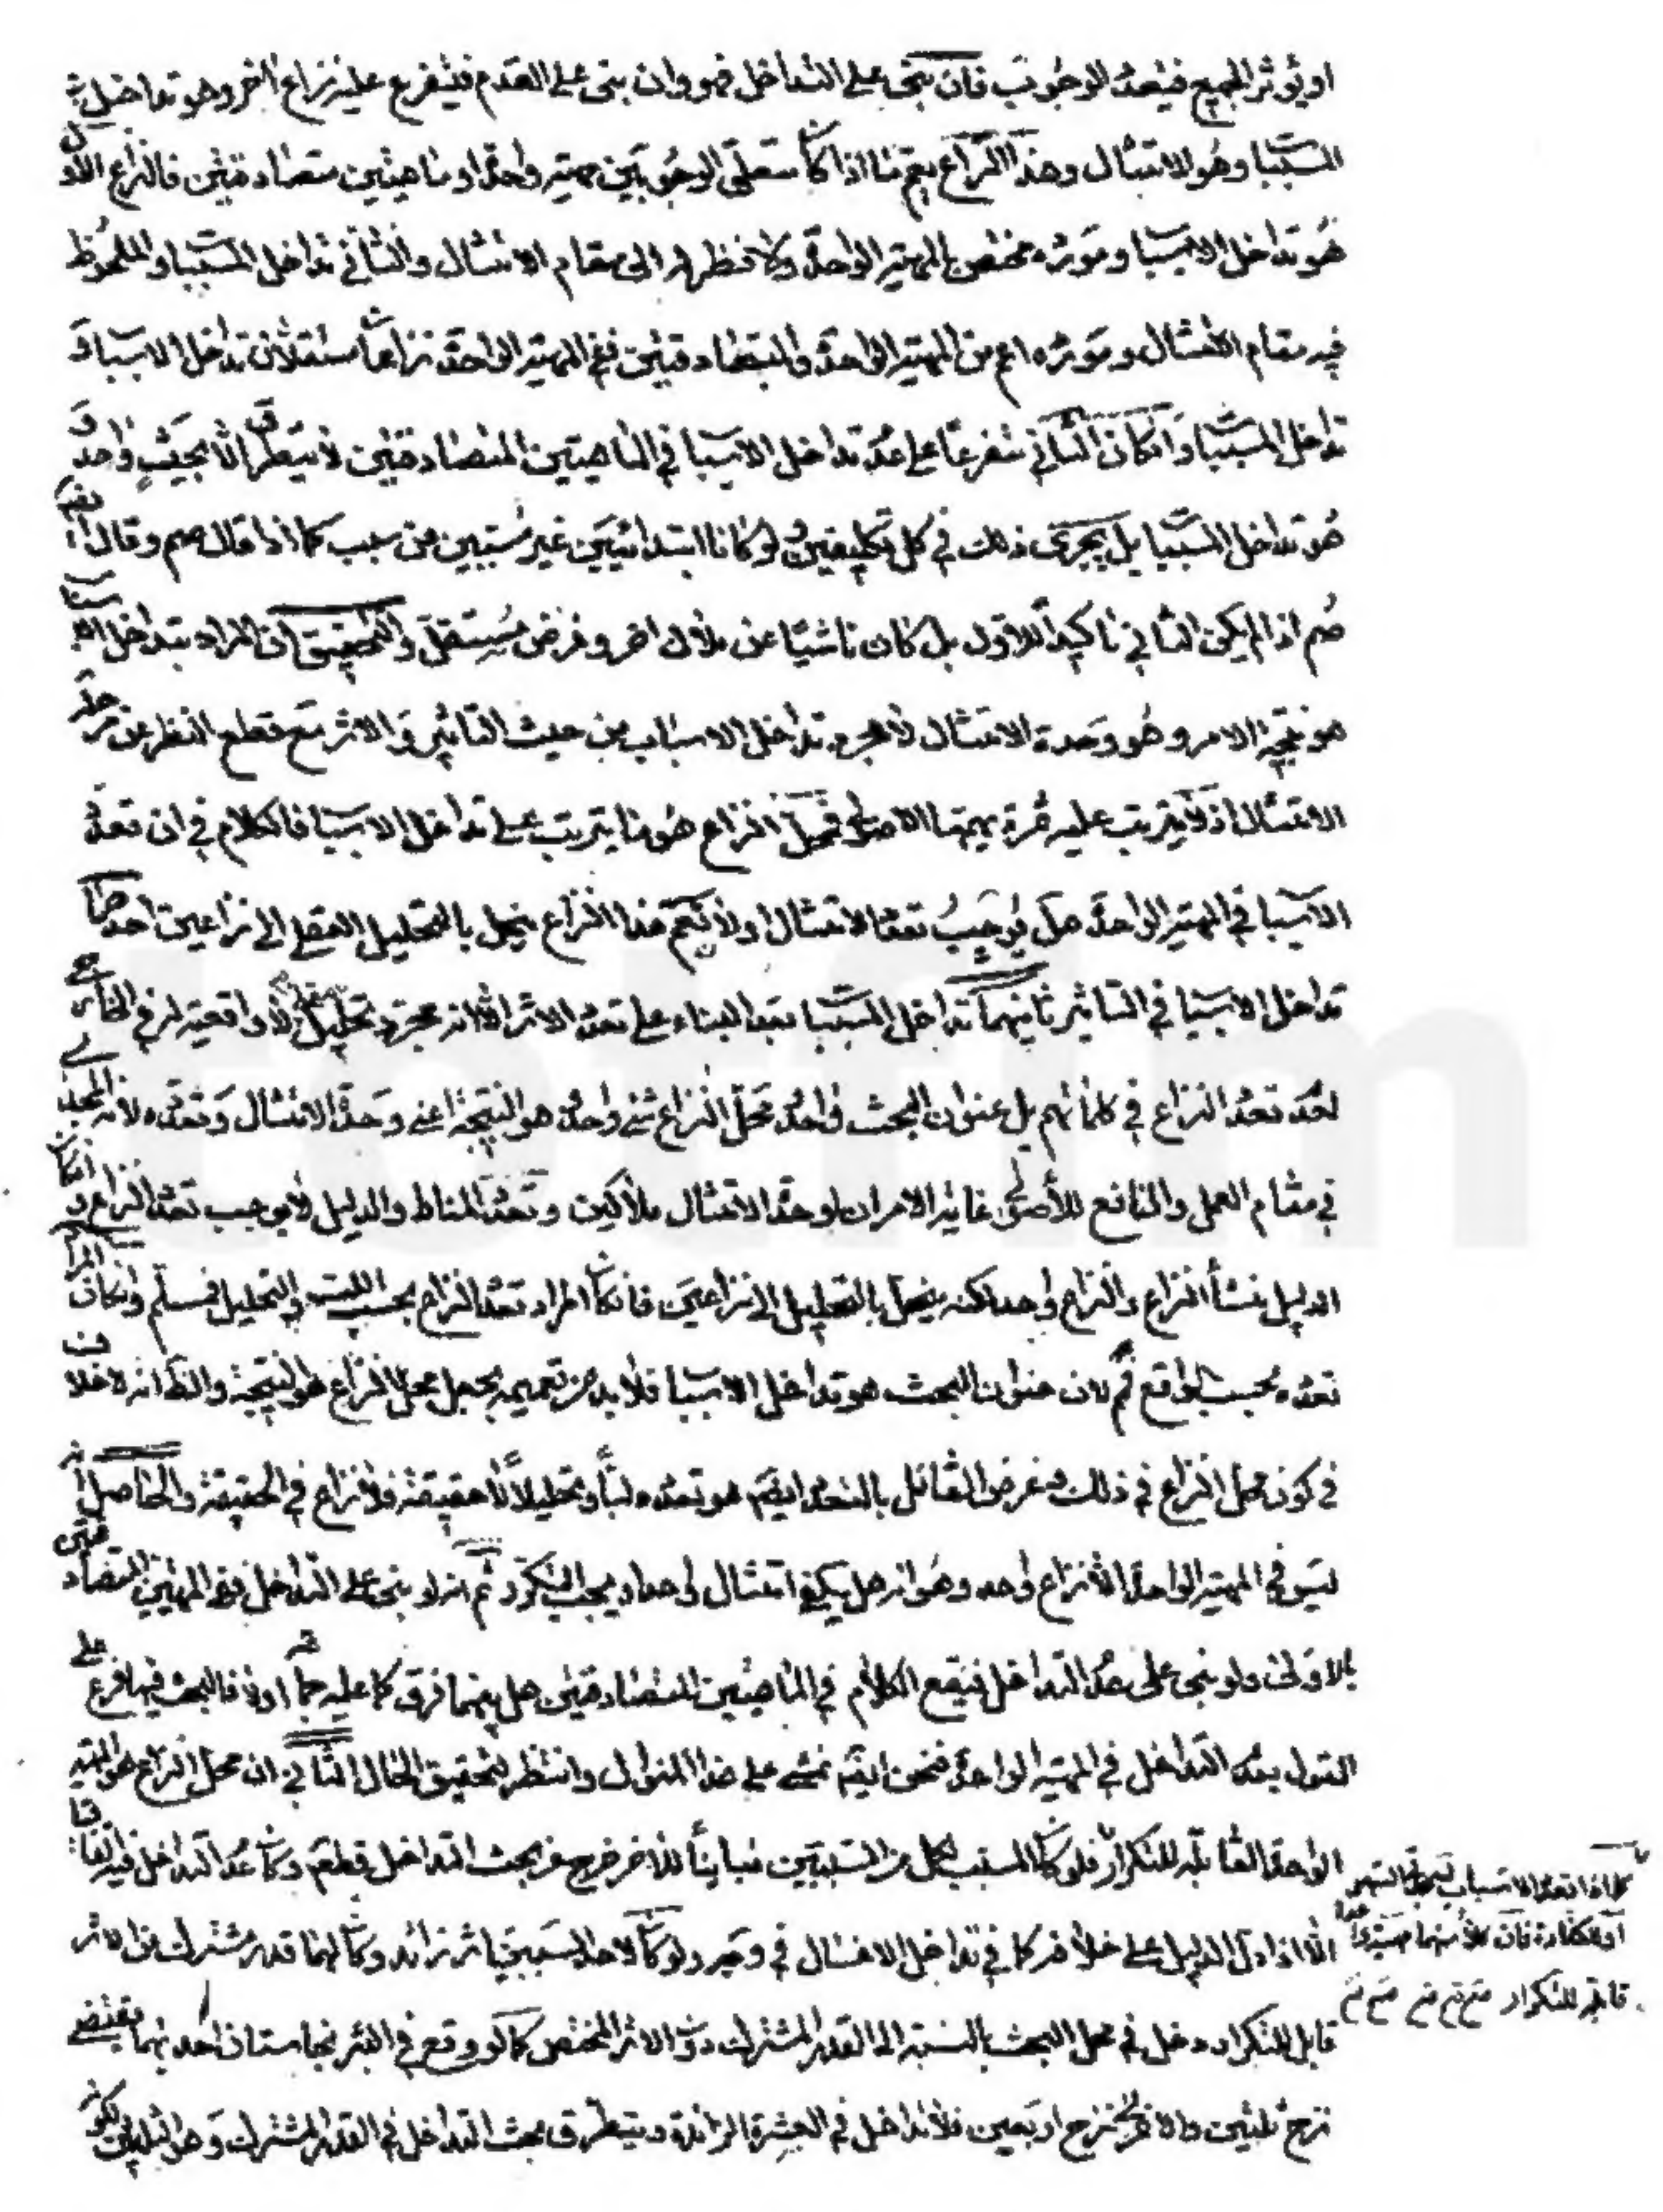 او يؤثر الجميع فيتعدد الوجوب فان بنى على التداخل فهو وان بنى على العدم فيتفرع عليه نزاع اخر وهو تداخل
المسببا وهو الامتثال وهذا النزاع يعم ما اذا كا متعلق الوجوبين مهية واحدة او ماهيتين متصادقتين فالنزاع الاول
هو تداخل الاسبا ومورده مختص بالمهية الواحدة ولا نظر له الى مقام الامتثال والثانى تداخل المسببا والملحوظ
فيه مقام الامتثال ومورده اعم من المهية الواحدة والمتصادقتين ففى المهية الواحدة نزاعا مستقلان تداخل الاسبا و
تداخل المسببا وانكان الثانى متفرعا على عدم تداخل الاسبا وفى الماهيتين المتصادقتين لا يتطرق الا بحث واحد و
هو تداخل المسببا بل يجرى ذلك فى كل تكليفين ولو كانا ابتدائيين غير مسببين من سبب كما اذا قال صم وقال ايضا
صم اذا لم يكن الثانى تاكيدا للاول بل كان ناشيا عن ملاك اخر وغرض مستقل والتحقيق ان المراد بتداخل الاسبا
هو نتيجة الامر وهو وحدة الامتثال لا مجرد تداخل الاسباب من حيث التاثير والاثر مع قطع النظر عن مرحلة
الامتثال اذ لا يترتب عليه ثمرة يهتم بها الاصولى فمحل النزاع هو ما يترتب على تداخل الاسبا فالكلام فى ان تعدد
الاسبا فى المهية الواحدة هل يوجب تعدد الامتثال او لا نعم هذا النزاع ينحل بالتحليل العقلى الى نزاعين احدهما
تداخل الاسبا فى التاثير ثانيهما تداخل المسببا بعد البناء على تعدد الاثر الا انه مجرد تحليل لا واقعية له فى الخارج
لعدم تعدد النزاع فى كلماتهم بل عنوان البحث واحد ومحل النزاع شئ واحد هو النتيجة اعنى وحدة الامتثال وتعدده لانه المجدى
فى مقام العمل والنافع للاصولى غاية الامر ان لوحدة الامتثال ملاكين وتعدد المناط والدليل لا يوجب تعدد النزاع و
الدليل منشأ النزاع والنزاع واحد لكنه ينحل بالتحليل الى نزاعين فانكا المراد تعدد النزاع بحسب اللب والتحليل فمسلم وانكان المراد
تعدده بحسب الواقع فلا لان عنوان البحث هو تداخل الاسبا فلا بد من تعميمه بجعل محل النزاع هو النتيجة والظ انه لا خلاف
فى كون محل النزاع فى ذلك وغرض القائل بالتعدد ايضا هو تعدده لبا وتحليلا لا حقيقة فلا نزاع فى الحقيقة والحاصل انه
ليس فى المهية الواحدة الا نزاع واحد وهو انه هل يكفى امتثال واحد او يجب التكرر ثم انه لو بنى على التداخل ففى المهيتين المتصادقتين
بالاولى ولو بنى على عدم التداخل فيقع الكلام فى الماهيتين المتصادقتين هل بينهما فرق كما عليه جماعة او لا فالبحث فيها فرع على
القول بعدم التداخل فى المهية الواحدة فنحن ايضا نمشى على هذا المنوال وانتظر لتحقيق الحال الثانى ان محل النزاع هو المهية
الواحدة القابلة للتكرار فلو كا المسبب لكل من السببين مباينا للاخر خرج عن بحث التداخل قطعا وكا عدم التداخل فيه اتفاقا
الا اذا دل الدليل على خلافه كما فى تداخل الاغسال فى وجه ولو كا لاحد السببين اثر زائد وكا لهما قدر مشترك من الاثر
قابل للتكرار دخل فى محل البحث بالنسبة الى القدر المشترك دون الاثر المختص كما لو وقع فى البئر نجاستان احدهما يقتضى
نزح ثلثين والاخر نزح اربعين فلا تداخل فى العشرة الزائدة ويتطرق بحث التداخل فى القدر المشترك وهو الثلثين
كما اذا تعدد الاسباب
او للكفارة فان كلا منهما مهية واحدة
قابلة للتكرار